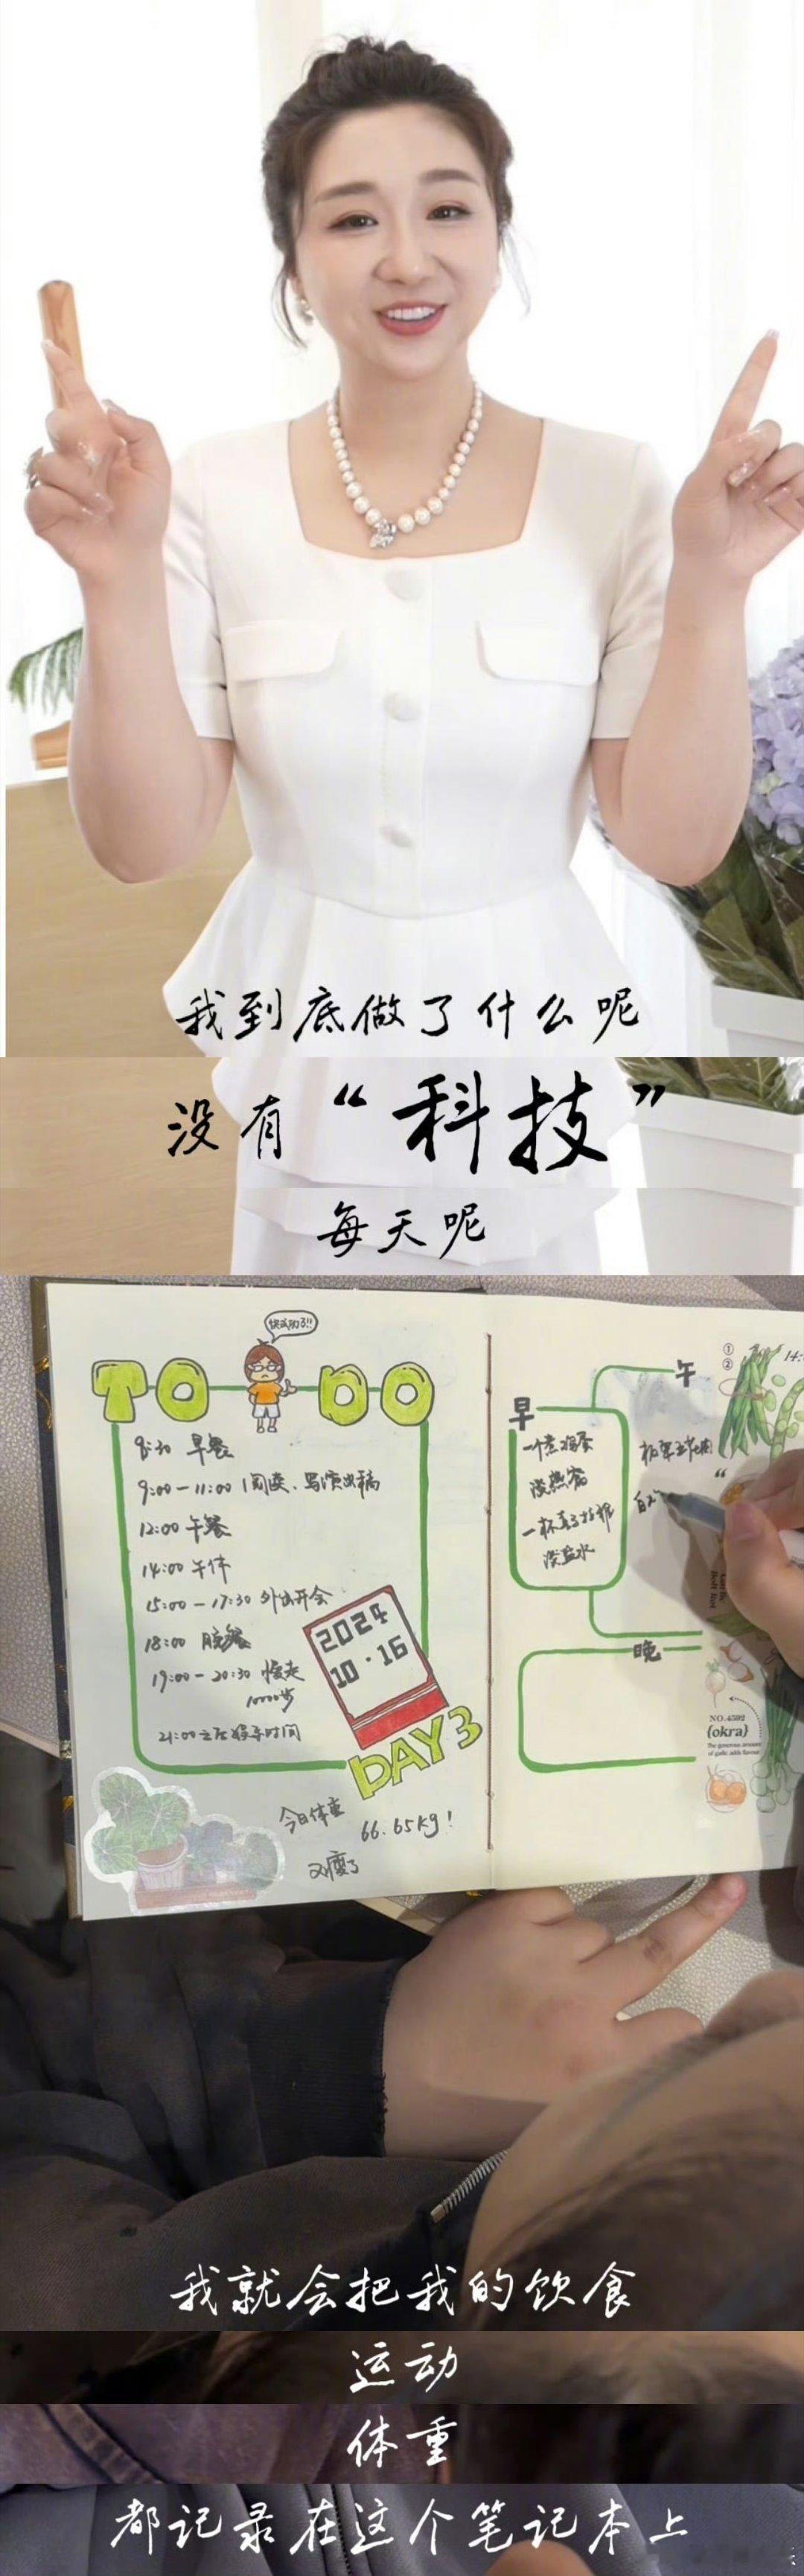 我到底做了什么呢
没有“科技”
每天呢
快成功了!!
TO DO
8:30 早餐
9:00—11:00 阅读、写演出稿
12:00 午餐
14:00 午休
15:00—17:30 外出开会
18:00 晚餐
19:00—20:30 慢走
10000步
21:00之后
时间
2024
10·16
DAY 3
今日体重
66.65kg!
又瘦了
早
一个煮鸡蛋
一杯
淡盐水
午
①
②
14:
晚
NO.4592
{okra}
The generous amount
of garlic adds flavour
我就会把我的饮食
运动
体重
都记录在这个笔记本上